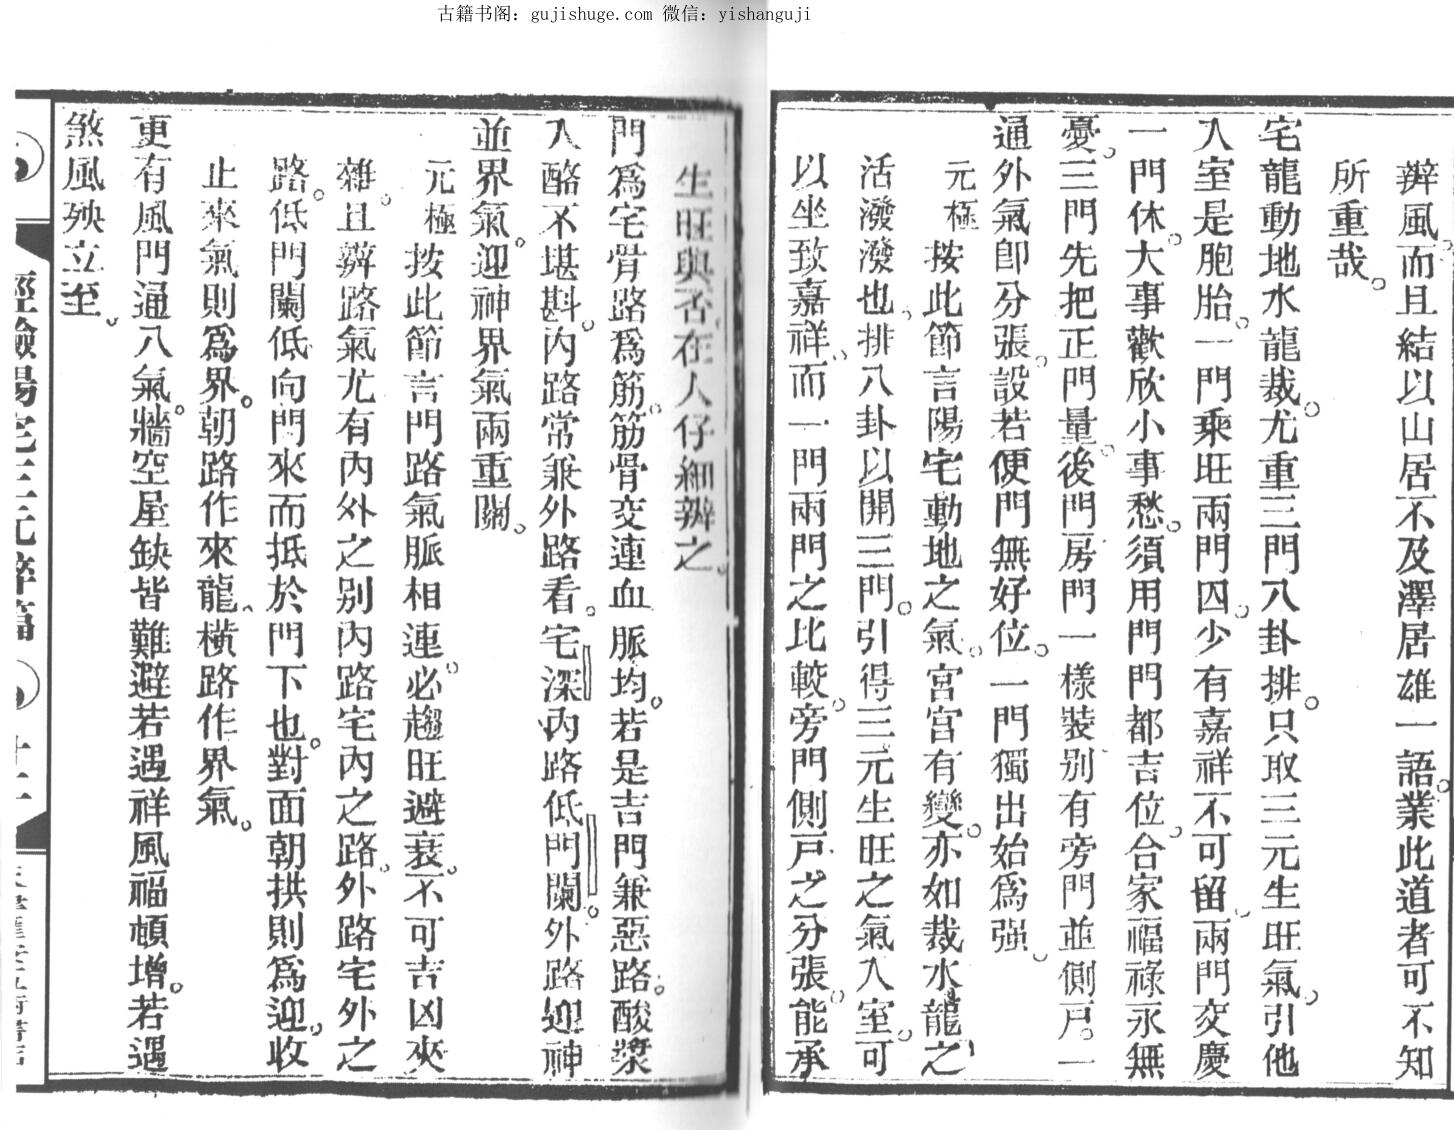 古籍书阁：gujishuge.com 微信：yishanguji
辨風而且結以山居不及澤居雄一語。業此道者可不知
所重哉。
宅龍動地水龍裁。尤重三門八卦排。只取三元生旺氣。引他
入室是胞胎。一門乘旺兩門囚。少有嘉祥不可留。兩門交慶
一門休。大事歡欣小事愁。須用門門都吉位。合家福祿永無
憂。三門先把正門量。後門房門一樣裝。别有旁門並側戶。一
通外氣卽分張。設若便門無好位。一門獨出始爲强。
元極按此節言陽宅動地之氣。宮宮有變。亦如裁水龍之
活潑潑也。排八卦以開三門。引得三元生旺之氣入室。可
以坐致嘉祥。而一門兩門之比較。旁門側戶之分張。能承
生旺與否。在人仔細辨之。
門爲宅骨路爲筋。筋骨交連血脈均。若是吉門兼惡路。酸漿
入酪不堪斟。內路常兼外路看。宅深內路低門闌。外路迎神
並界氣。迎神界氣兩重關。
元極按此節言門路氣脈相連。必趨旺避衰。不可吉凶夾
雜。且辨路氣尤有內外之別內路宅內之路。外路宅外之
路。低門闌低向門來而抵於門下也。對面朝拱則爲迎。收
止來氣則爲界。朝路作來龍。橫路作界氣。
更有風門通八氣。牆空屋缺皆難避若遇祥風福頓增。若遇
煞風殃立至。
經驗陽宅三元